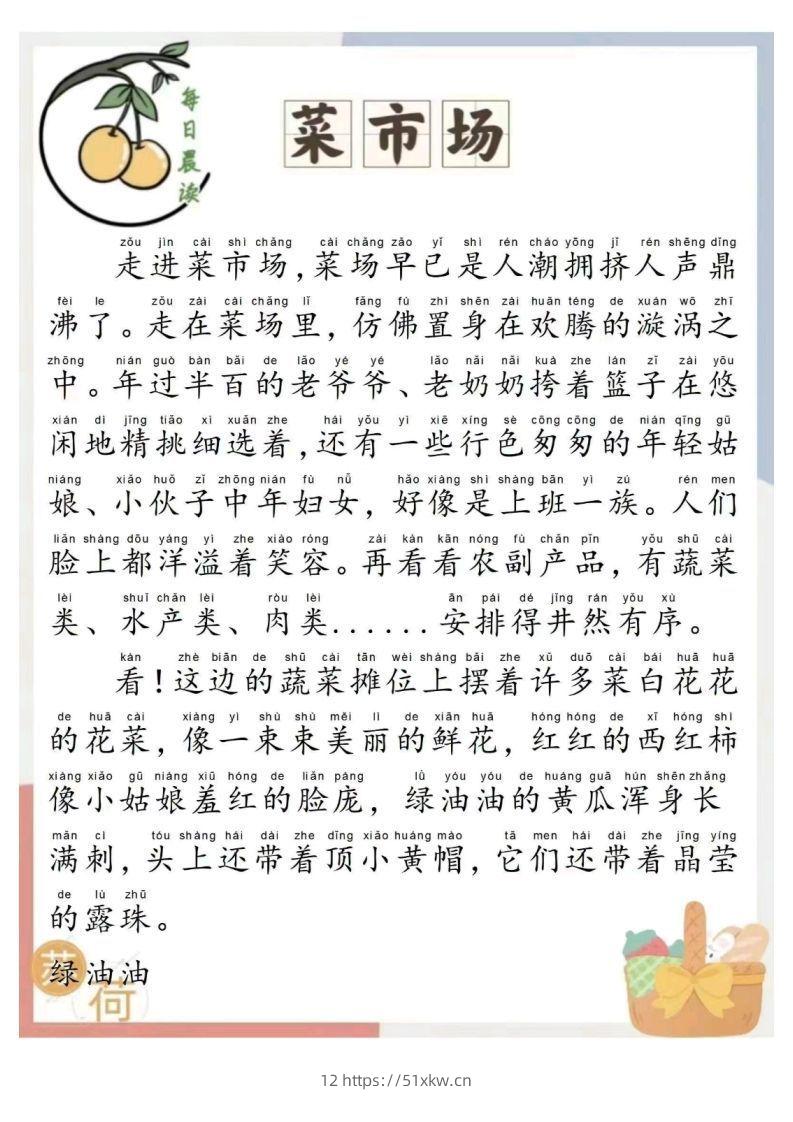 每日晨读
菜市场
zǒu jìn cài shì chǎng cài chǎng zǎo yǐ shì rén cháo yōng jǐ rén shēng dǐng
走进菜市场,菜场早已是人潮拥挤人声鼎
fèi le zǒu zài cài chǎng lǐ fǎng fú zhì shēn zài huān téng de xuán wō zhī
沸了。走在菜场里,仿佛置身在欢腾的漩涡之
zhōng nián guò bàn bǎi de lǎo yé yé lǎo nǎi nǎi kuà zhe lán zǐ zài yōu
中。年过半百的老爷爷、老奶奶挎着篮子在悠
xián dì jīng tiāo xì xuǎn zhe hái yǒu yì xiē xíng sè cōng cōng de nián qīng gū
闲地精挑细选着,还有一些行色匆匆的年轻姑
niáng xiǎo huǒ zǐ zhōng nián fù nǚ hǎo xiàng shì shàng bān yì zú rén men
娘、小伙子中年妇女,好像是上班一族。人们
liǎn shàng dōu yáng yì zhe xiào róng zài kàn kān nóng fù chǎn pǐn yǒu shū cài
脸上都洋溢着笑容。再看看农副产品,有蔬菜
lèi shuǐ chǎn lèi ròu lèi ān pái dé jǐng rán yǒu xù
类、水产类、肉类......安排得井然有序。
kàn zhè biān de shū cài tān wèi shàng bǎi zhe xǔ duō cài bái huā huā
看!这边的蔬菜摊位上摆着许多菜白花花
de huā cài xiàng yì shù shù měi lì de xiān huā hóng hóng de xī hóng shì
的花菜,像一束束美丽的鲜花,红红的西红柿
xiàng xiǎo gū niàng xiū hóng de liǎn páng lǜ yóu yóu de huáng guā hún shēn zhǎng
像小姑娘羞红的脸庞,绿油油的黄瓜浑身长
mǎn cì tóu shàng hái dài zhe dǐng xiǎo huáng mào tā men hái dài zhe jīng yíng
满刺,头上还带着顶小黄帽,它们还带着晶莹
de lù zhū
的露珠。
绿油油
荷
12 https://51xkw.cn